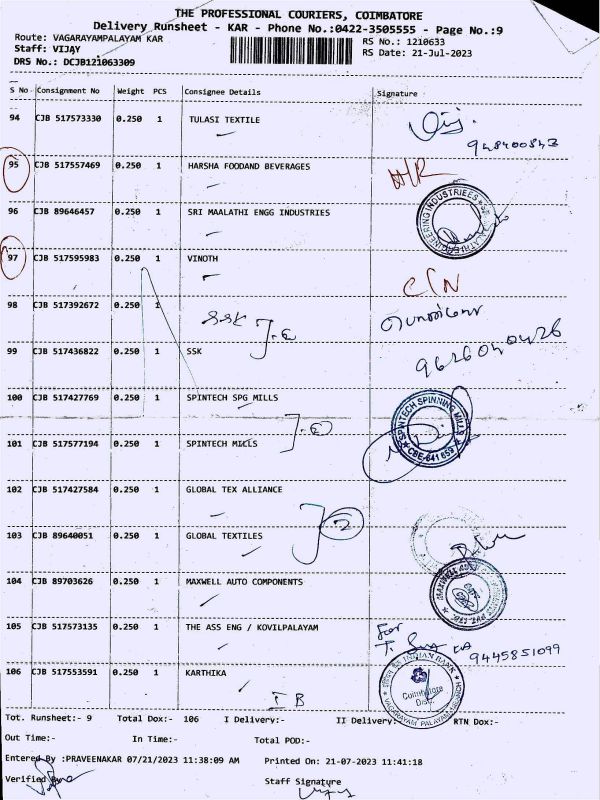 THE PROFESSIONAL COURIERS, COIMBATORE
Delivery Runsheet - KAR - Phone No.:0422-3505555 - Page No.:9
Route: VAGARAYAMPALAYAM KAR
RS No.: 1210633
Staff: VIJAY
RS Date: 21-Jul-2023
DRS No.: DCJB121063309
S No Consignment No Weight PCS Consignee Details Signature
94 CJB 517573330 0.250 1 TULASI TEXTILE
95 CJB 517557469 0.250 1 HARSHA FOODAND BEVERAGES
96 CJB 89646457 0.250 1 SRI MAALATHI ENGG INDUSTRIES
97 CJB 517595983 0.250 1 VINOTH
98 CJB 517392672 0.250 1 SSK
99 CJB 517436822 0.250 1 SSK
9626040426
100 CJB 517427769 0.250 1 SPINTECH SPG MILLS
SPINTECH SPINNING MILLS
CBE-641 659
101 CJB 517577194 0.250 1 SPINTECH MILLS
102 CJB 517427584 0.250 1 GLOBAL TEX ALLIANCE
2
103 CJB 89640051 0.250 1 GLOBAL TEXTILES
104 CJB 89703626 0.250 1 MAXWELL AUTO COMPONENTS
105 CJB 517573135 0.250 1 THE ASS ENG / KOVILPALAYAM
For
9445851099
106 CJB 517553591 0.250 1 KARTHIKA
INDIAN BANK
Coimbatore
Dist.
VAGARAYAM PALAYAM BRANCH
I B
Tot. Runsheet:- 9 Total Dox:- 106 I Delivery:- II Delivery:- RTN Dox:-
Out Time:- In Time:- Total POD:-
Entered By :PRAVEENAKAR 07/21/2023 11:38:09 AM Printed On: 21-07-2023 11:41:18
Verified By
Staff Signature